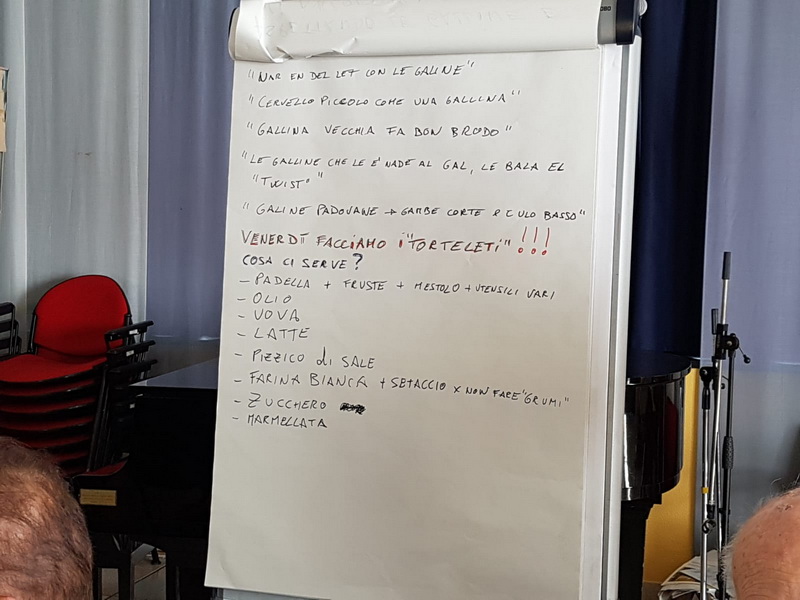 "NAR EN DEL LET CON LE GALINE"
"CERVELLO PICCOLO COME UNA GALLINA"
"GALLINA VECCHIA FA BON BRODO"
"LE GALLINE CHE LE E' NADE AL GAL, LE BALA EL
"TWIST""
"GALINE PADOVANE → GAMBE CORTE e CULO BASSO"
VENERDÌ FACCIAMO i "TORTELETI" !!!
COSA CI SERVE?
- PADELLA + FRUSTE + MESTOLO + UTENSILI VARI
- OLIO
- UOVA
- LATTE
- PIZZICO di SALE
- FARINA BIANCA + SETACCIO x NON FARE "GRUMI"
- ZUCCHERO
- MARMELLATA